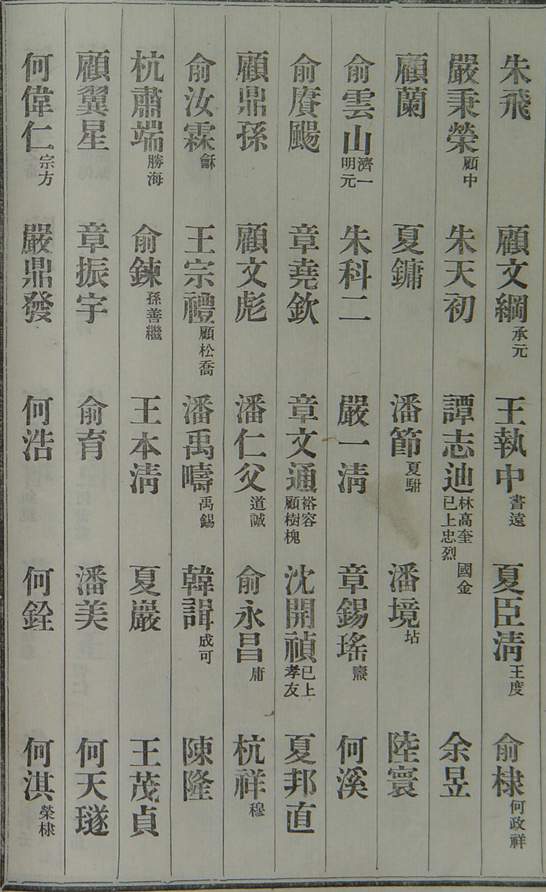 朱飛 顧文綱承元 王執中書遠 夏臣淸王度 俞棣何政祥
嚴秉榮顧中 朱天初 譚志迪林高奎國金已上忠烈 余昱
顧蘭 夏鏞 潘節夏 潘境坫 陸寰
俞雲山濟一明元 朱科二 嚴一淸 章錫瑤 何溪
俞賡颺 章堯欽 章文通裕容顧樹槐 沈開禎已上孝友 夏邦直
顧鼎孫 顧文彪 潘仁父道誠 俞永昌庸 杭祥穆
俞汝霖龢 王宗禮顧松喬 潘禹疇禹錫 韓諿成可 陳隆
杭肅端勝海 俞鍊孫善繼 王本淸 夏巖 王茂貞
顧翼星 章振宇 俞育 潘美 何天璲
何偉仁宗方 嚴鼎發 何浩 何銓 何淇榮棣